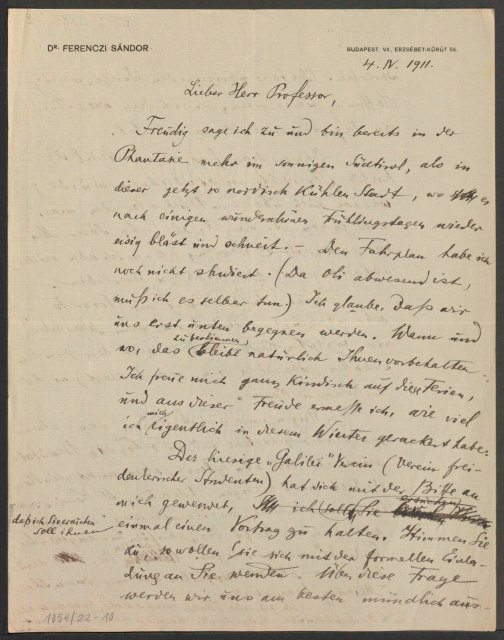 Dr. FERENCZI SÁNDOR
BUDAPEST, VII. ERZSÉBET-KÖRÚT 54.
4. IV. 1911.
Lieber Herr Professor,
Freudig sage ich zu und bin bereits in der
Phantasie mehr im sonnigen Südtirol, als in
dieser jetzt so nordisch kühlen Stadt, wo es
nach einigen wunderschönen Frühlingstagen wieder
eisig bläst und schneit. — Den Fahrplan habe ich
noch nicht studiert. (Da Oli abwesend ist,
muß ich es selber tun.) Ich glaube, daß wir
uns erst unten begegnen werden. Wann und
wo, das zu bestimmen bleibt natürlich Ihnen vorbehalten.
Ich freue mich ganz kindisch auf die Ferien,
und aus dieser Freude ermesse ich, wie viel
ich mich eigentlich in diesem Winter gerackert habe.
Der hiesige „Galilei" Verein (Verein frei-
denkerischer Studenten) hat sich mit der Bitte an
mich gewendet, daß ich Sie ersuchen soll ihnen
einmal einen Vortrag zu halten. Stimmen Sie
zu, so wollen sie sich mit der formellen Einla-
dung an Sie wenden. Über diese Frage
werden wir uns am besten mündlich aus-
1054/22-10